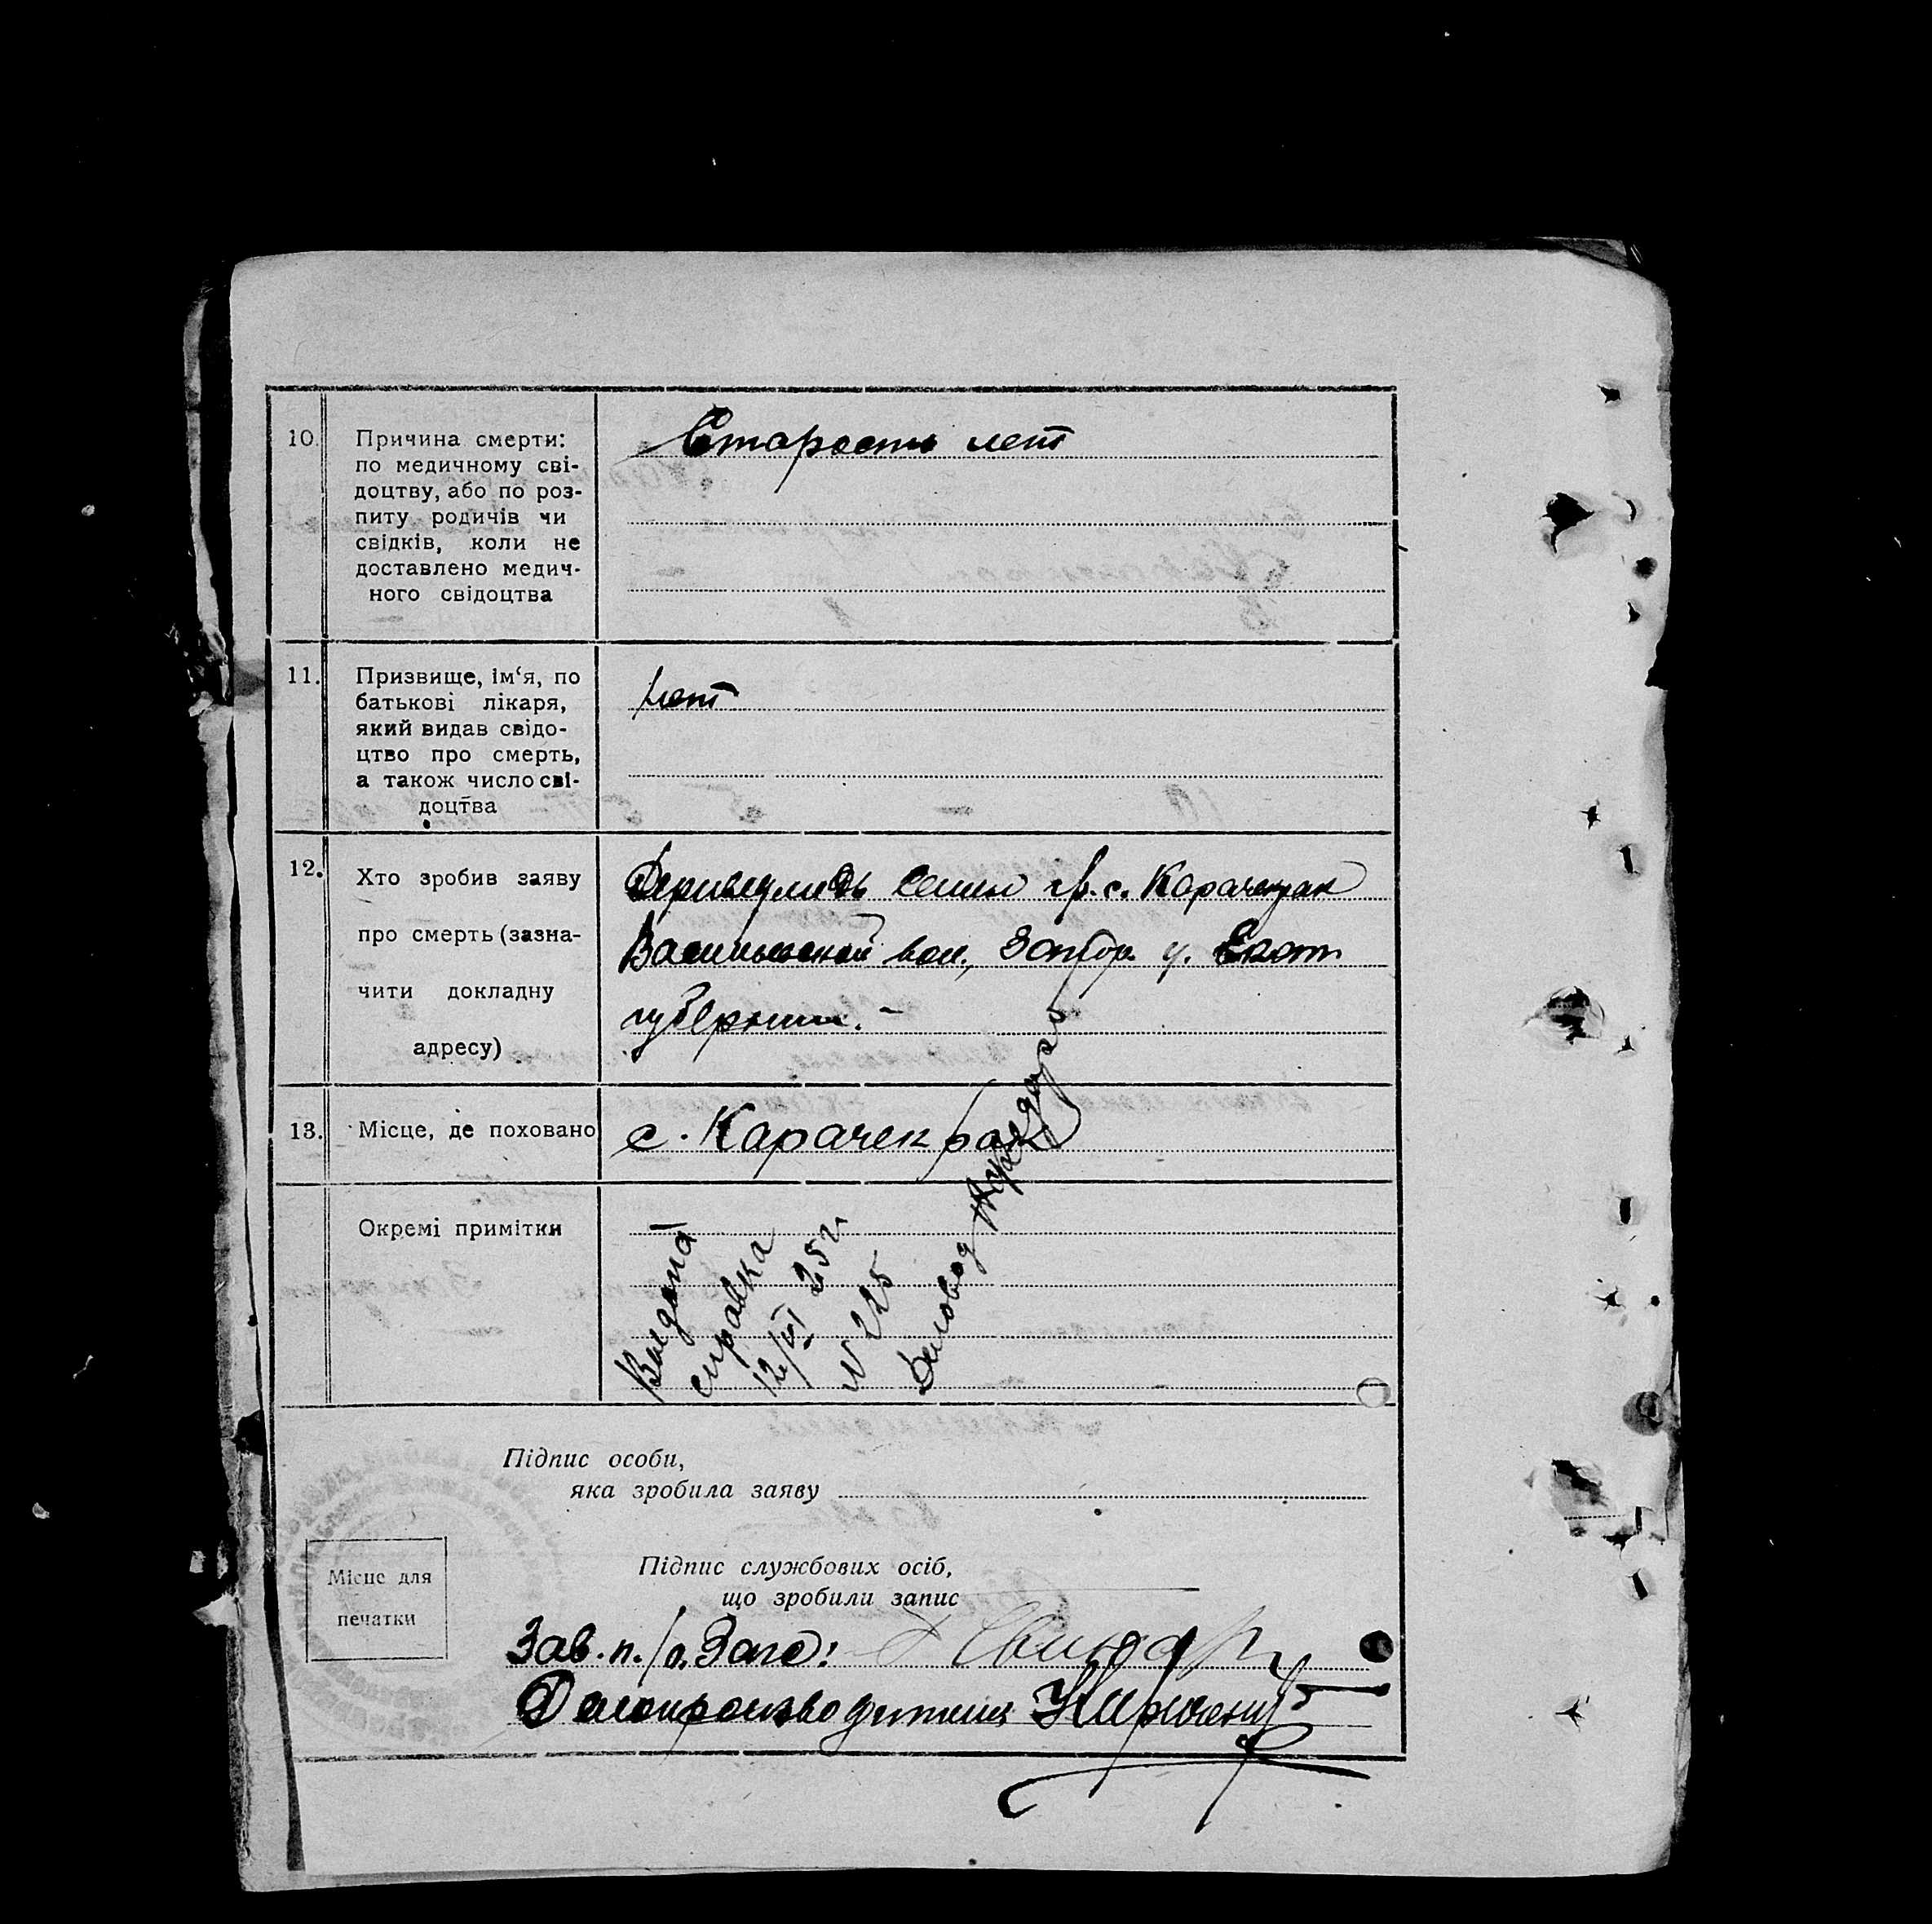 10. Причина смерти:
по медичному сві-
доцтву, або по роз-
питу родичів чи
свідків, коли не
доставлено медич-
ного свідоцтва
Старость лет
11. Призвище, ім‘я, по
батькові лікаря,
який видав свідо-
цтво про смерть,
а також число сві-
доцтва
нет
12. Хто зробив заяву
про смерть (зазна-
чити докладну
адресу)
гр. с. Карачекрак
Васильевской вол., Запор. у. Екат.
губернии. –
13. Місце, де поховано
с. Карачекрак
Окремі примітки
Видана
справка
12/VI 25 г.
№ 225
Діловод
Підпис особи,
яка зробила заяву
Підпис службових осіб,
що зробили запис
Місце для
печатки
Зав. п./о. Загс:
Делопроизводитель